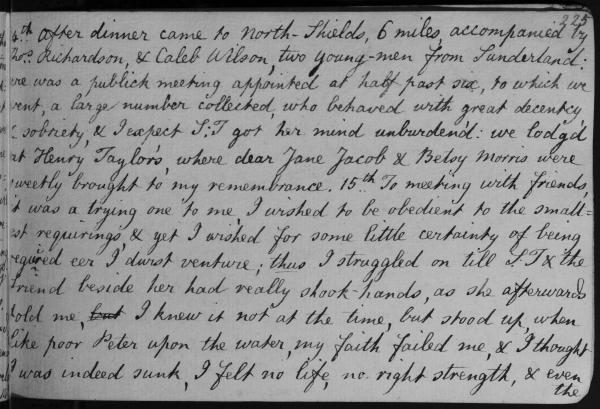 225
4th after dinner came to North-Shields, 6 miles, accompanied by
Thos Richardson, & Caleb Wilson, two young-men from Sunderland:
ere was a publick meeting appointed at half past six, to which we
went, a large number collected, who behaved with great decentcy
& sobriety, & I expect S:T got her mind unburden'd: we lodg'd
at Henry Taylor's, where dear Jane Jacob & Betsy Morris were
sweetly brought to my remembrance. 15th To meeting with friends,
it was a trying one to me, I wished to be obedient to the small=
est requirings, & yet I wished for some little certainty of being
required eer I durst venture; thus I struggled on till S T & the
friend beside her had really shook-hands, as she afterwards
told me, but I knew it not at the time, but stood up, when
like poor Peter upon the water, my faith failed me, & I thought
I was indeed sunk, I felt no life, no right strength, & even
the